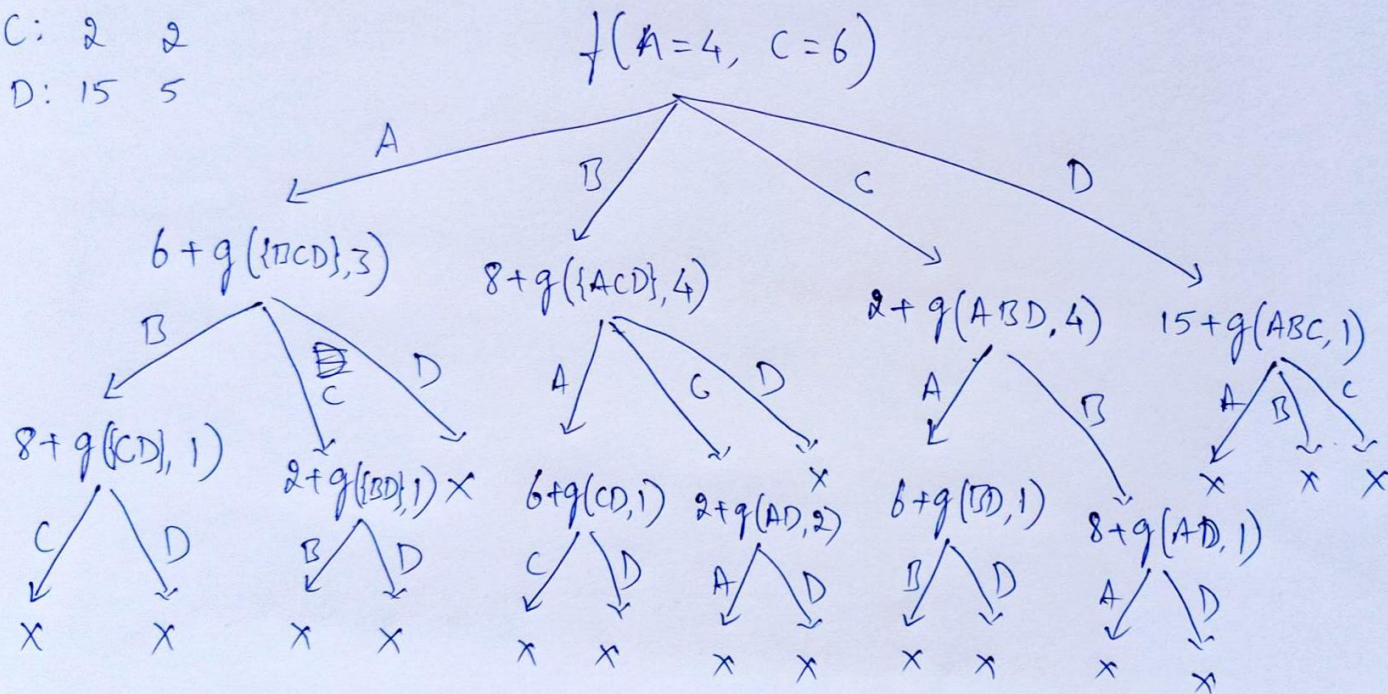 C: 2 2
D: 15 5
f(A=4, C=6)
A B C D
6+g({BCD},3)
8+g({ACD},4)
2+g(ABD,4)
15+g(ABC,1)
B C D
A C D
A B
A B C
8+g({CD},1)
2+g({BD},1) x
6+g(CD,1)
2+g(AD,2)
x
6+g(BD,1)
8+g(AD,1)
x x x
C D
B D
C D
A D
B D
A D
x x x x x x x x x x x x